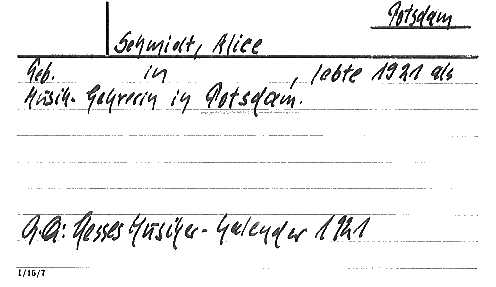 Potsdam
Schmidt, Alice
Geb. in , lebte 1921 als
Musik-Lehrerin in Potsdam.
Hesses Musiker-Kalender 1921
1/16/7